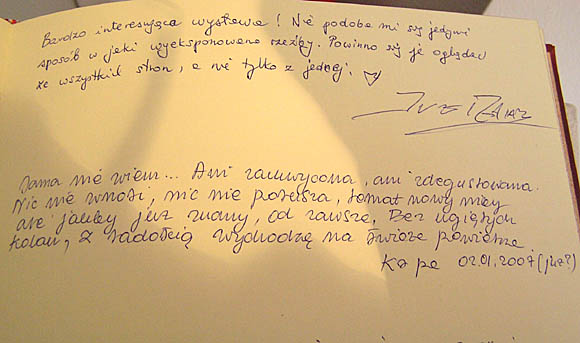 Bardzo interesująca wystawa! Nie podoba mi się jedynie
sposób w jaki wyeksponowano rzeźby. Powinno się je oglądać
ze wszystkich stron, a nie tylko z jednej.
Sama nie wiem... Ani zachwycona, ani zdegustowana.
Nic nie wnosi, nic nie porusza, temat nowy niby
ale jakby już znany, od zawsze. Bez ugiętych
kolan, z radością wychodzę na świeże powietrze.
Kape 02.01.2007 (już?)